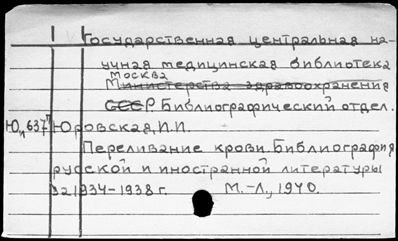 Государственная центральная на-
учная медицинская библиотека
Москва
Министерства здравоохранения
СССР. Библиографический отдел.
Юровская, П.П.
Переливание крови. Библиография
русской и иностранной литературы
за 1934-1938 г. М.-Л., 1940.